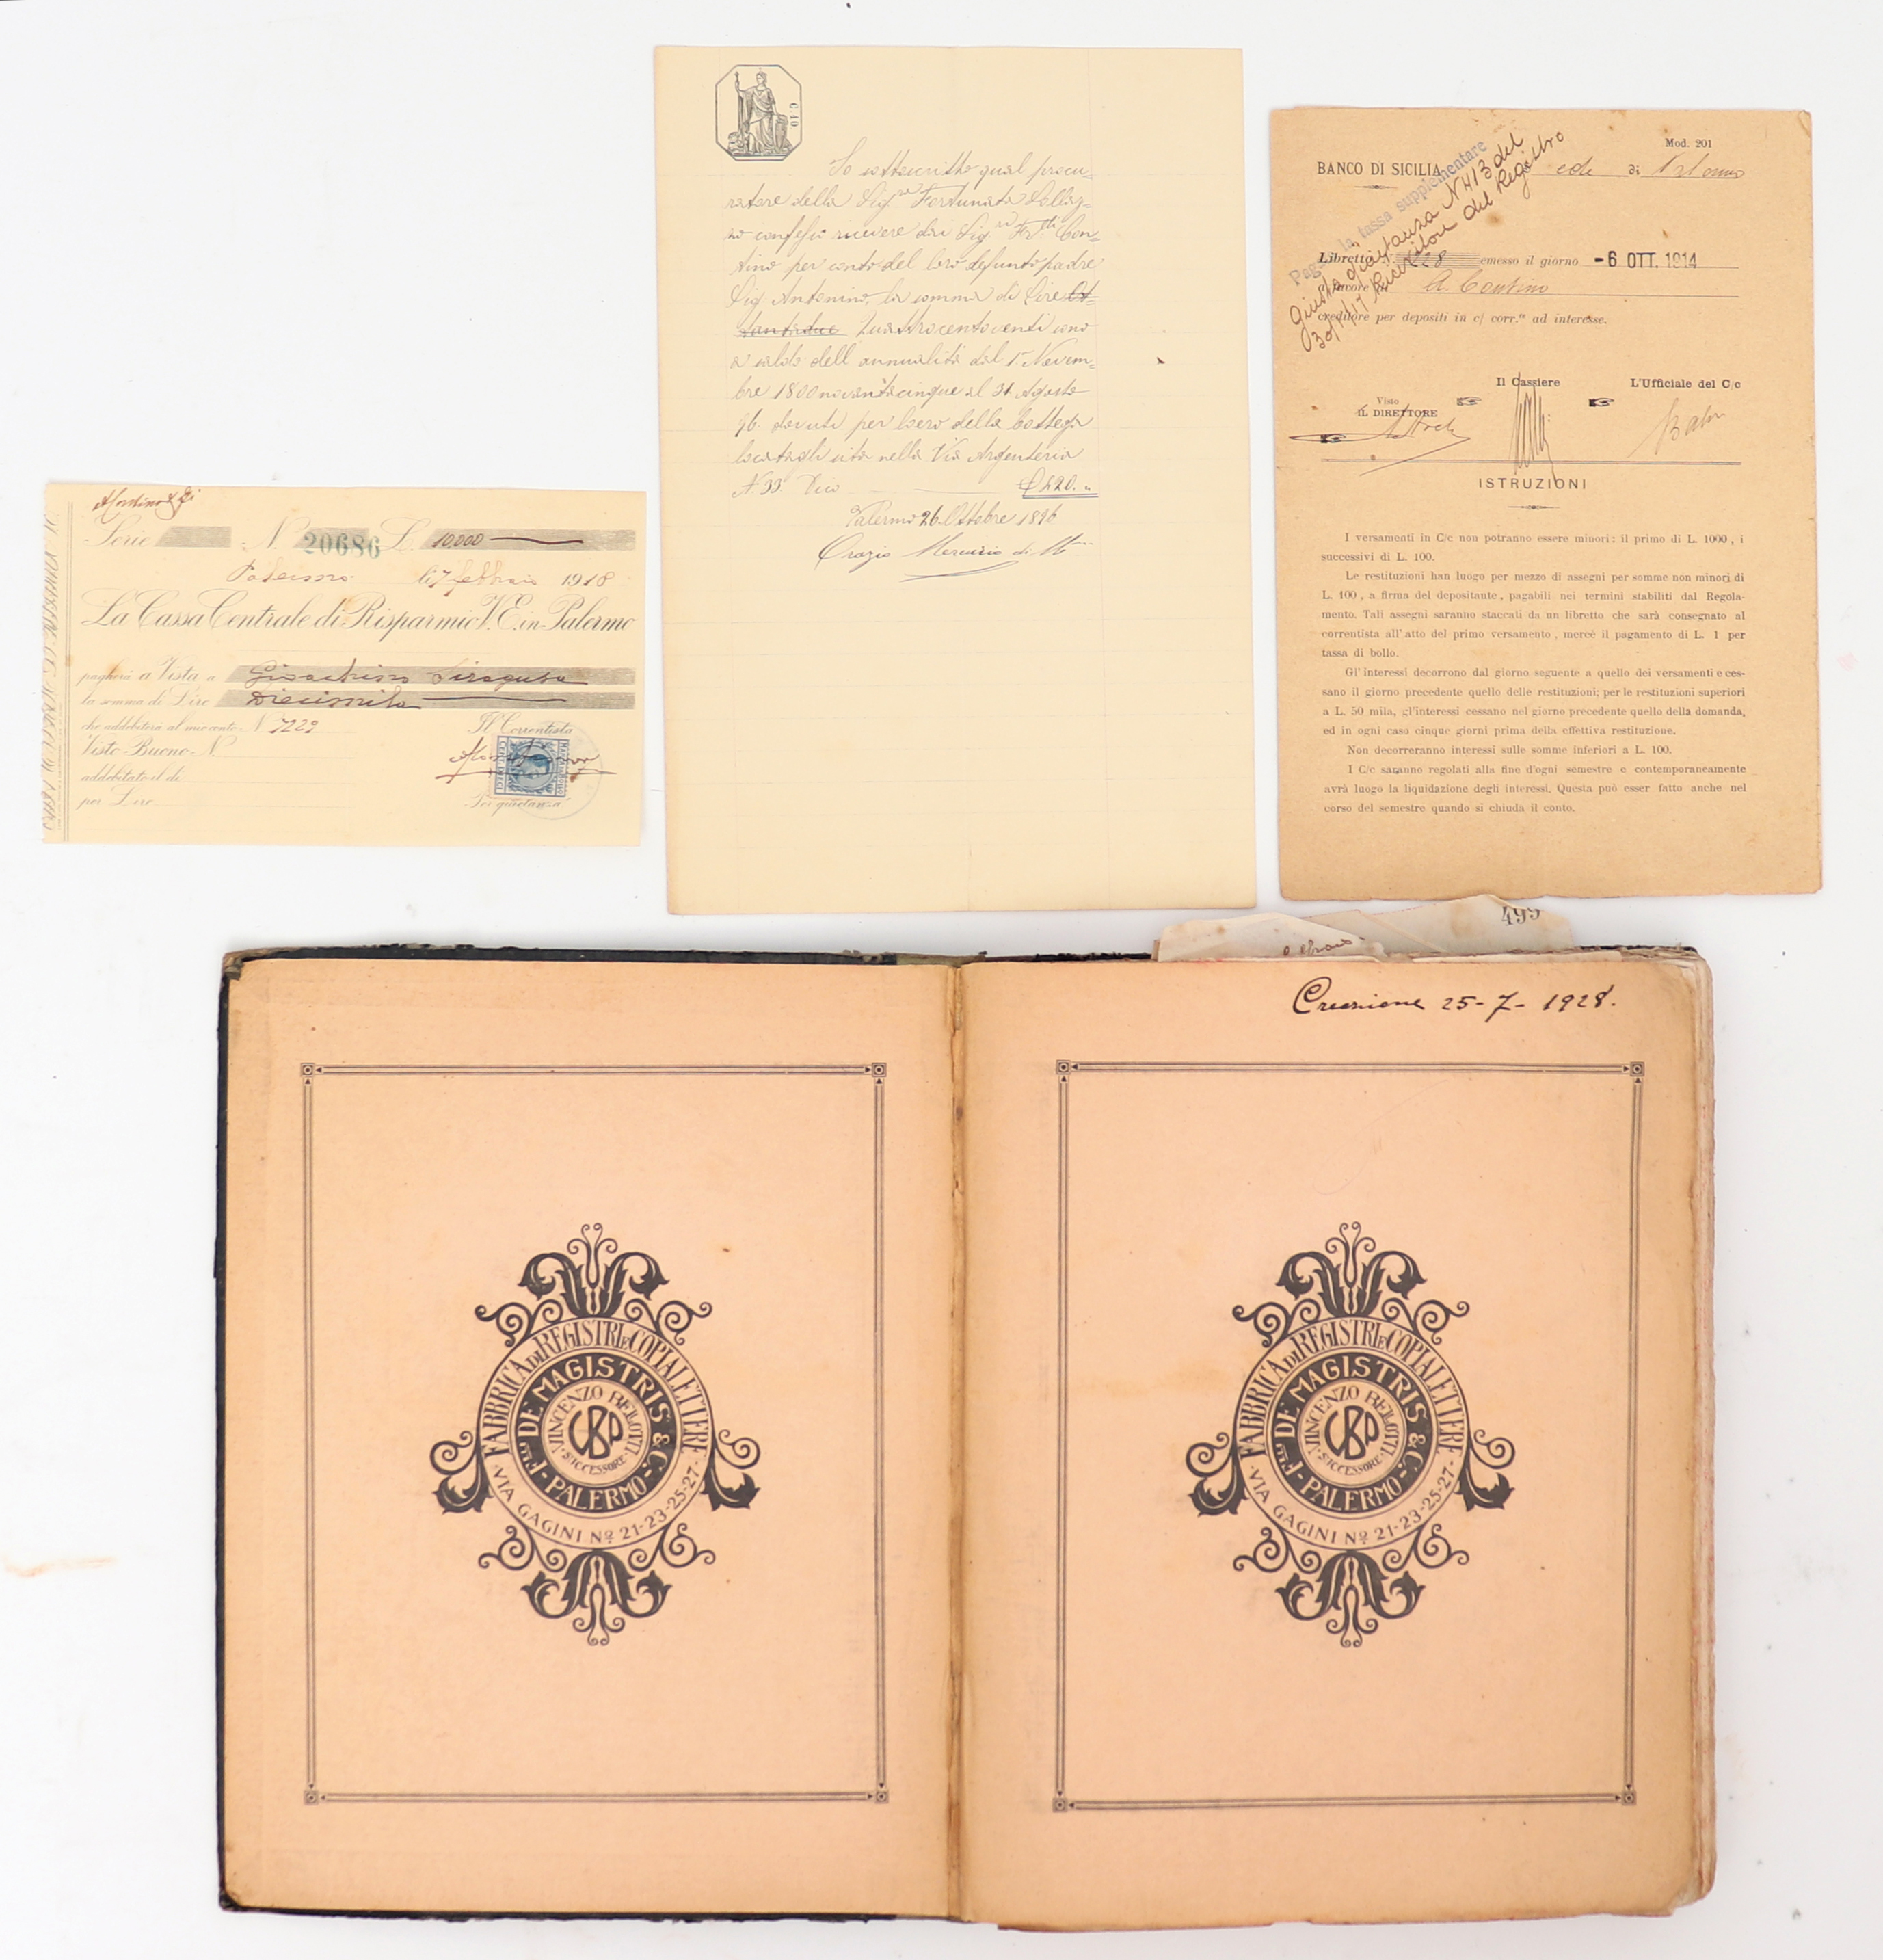 A Contino & Fi
Serie N. 20686 L. 10,000
Palermo li 7 febbraio 1918
La Cassa Centrale di Risparmio V. E. in Palermo
pagherà a Vista a Gioachino Siragusa
la somma di Lire Diecimila
che addebiterà al mio conto N. 7229
Il Correntista
Visto Buono N.
addebitato il di
per Lire
Per quietanza
MARCA DA BOLLO
CENT. DIECI
C. 10
Io sottoscritto qual procu=
ratore della Sigra Fortunata
no confesso ricevere dai Sigri Frlli Con=
tino per conto del loro defunto padre
Sig Antonino, la somma di Lire Ot=
tantadue Quattrocentoventi sono
a saldo dell annualità dal 1° Novem=
bre 1800novantacinque al 31 Agosto
96. dovuti per loero della bottega
locatagli sita nella Via Argenteria
N. 33. Dico £ 420. "
Palermo 26. Ottobre 1896
Orazio Mercurio di
Mod. 201
BANCO DI SICILIA ede di Palermo
Pagata la tassa supplementare
Giusta quietanza N 413 del
30/7/17 Ricevitore del Registro
Libretto 228 emesso il giorno -6 OTT. 1914
a favore di A. Contino
creditore per depositi in c/ corr.te ad interesse.
Il Cassiere L'Ufficiale del C/c
Visto
IL DIRETTORE
ISTRUZIONI
I versamenti in C/c non potranno essere minori: il primo di L. 1000, i
successivi di L. 100.
Le restituzioni han luogo per mezzo di assegni per somme non minori di
L. 100, a firma del depositante, pagabili nei termini stabiliti dal Regola-
mento. Tali assegni saranno staccati da un libretto che sarà consegnato al
correntista all'atto del primo versamento, mercè il pagamento di L. 1 per
tassa di bollo.
Gl'interessi decorrono dal giorno seguente a quello dei versamenti e ces-
sano il giorno precedente quello delle restituzioni; per le restituzioni superiori
a L. 50 mila, gl'interessi cessano nel giorno precedente quello della domanda,
ed in ogni caso cinque giorni prima della effettiva restituzione.
Non decorreranno interessi sulle somme inferiori a L. 100.
I C/c saranno regolati alla fine d'ogni semestre e contemporaneamente
avrà luogo la liquidazione degli interessi. Questa può esser fatto anche nel
corso del semestre quando si chiuda il conto.
499
Creazione 25-7-1928.
FABBRICA DI REGISTRI E COPIALETTERE
F.lli DE MAGISTRIS & C.
VINCENZO BELLOTTI
SUCCESSORE
PALERMO
VIA GAGINI No 21-23-25-27
FABBRICA DI REGISTRI E COPIALETTERE
F.lli DE MAGISTRIS & C.
VINCENZO BELLOTTI
SUCCESSORE
PALERMO
VIA GAGINI No 21-23-25-27